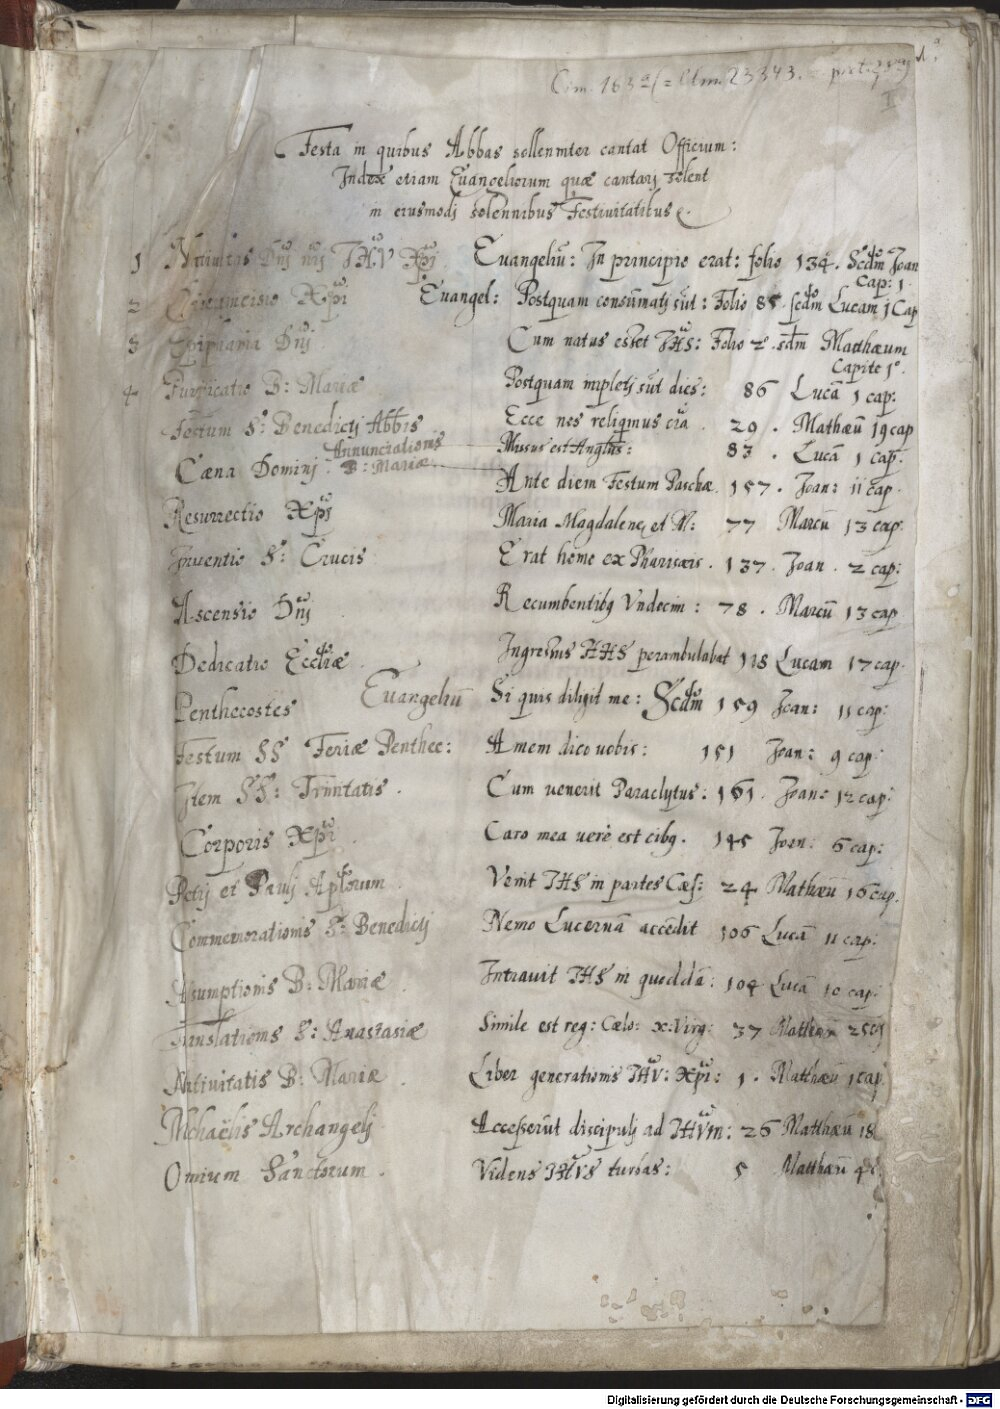 Cim. 163 a (= Clm. 23343.
1.
I
Festa in quibus Abbas sollenniter cantat Officium:
Index etiam Euangeliorum quæ cantarj solent
in eiusmodj solennibus Festiuitatibus.
1 Natiuitas Dnj nrj IHV Xpj Euangeliū: In principio erat: folio 134. Scdm Joan
Cap: 1.
2 Circumcisio Xpi Euangel: Postquam consumatj sūt: Folio 85. scdm Lucam j Cap
3 Epiphania Dnj Cum natus esset IHS: Folio 2º. sdm Matthæum
Capite 1º.
4 Purificatio B: Mariæ Postquam impletj sūt dies: 86 Lucā 1 cap:
Festum S: Benedictj Abbis Ecce nos reliqimus oīa 29. Mathæū 19 cap
Annunciationis B: Mariæ Missus est Anglus: 83. Lucā 1 cap.
Cæna Dominj Ante diem Festum Paschæ 157. Joan: 11 cap.
Resurrectio Xpi Maria Magdalene et M: 77 Marcū 13 cap.
Inuentio S: Crucis Erat home ex Pharisæis. 137. Joan. 2 cap:
Ascensio Dnj Recumbentibq Vndecim: 78. Marcū 13 cap
Dedicatio Eccliæ Ingressus IHS perambulabat 118 Lucam 17 cap.
Penthecostes Euangeliū Si quis diligit me: Scdm 159 Joan: 11 cap:
Festum SS Feriæ Penthec: Amem dico uobis: 151 Joan: 9 cap:
Item SS: Trinitatis. Cum venerit Paraclytus: 161. Joan: 12 cap:
Corporis Xpi Caro mea uerè est cibq. 145 Joan: 6 cap:
Petrj et Paulj Aplorum Venit IHS in partes Cæs: 24 Mathæū 16 cap.
Commemorationis S: Benedictj Nemo Lucernā accēdit 106 Lucā 11 cap:
Asumptionis B: Mariæ Intrauit IHS in quoddā: 104 Lucā 10 cap:
Translationis S: Anastasiæ Simile est reg: Cælo: x: Virg: 37 25
Natiuitatis B: Mariæ Liber generationis IHV: Xpi: 1. Matthæū 1 cap
Michaëlis Archangelj Accesserūt discipulj ad IHVm: 26 Matthæū 18
Omnium Sanctorum. Videns IHVS turbas: 5 Matthæū 4
Digitalisierung gefördert durch die Deutsche Forschungsgemeinschaft - DFG